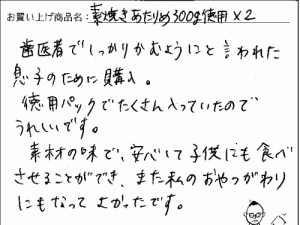 お買い上げ商品名：素焼きあたりめ300g徳用×2
歯医者でしっかりかむようにと言われた
息子のために購入。
徳用パックでたくさん入っていたので
うれしいです。
素材の味で、安心して子供にも食べ
させることができ、また私のおやつがわり
にもなってよかったです。